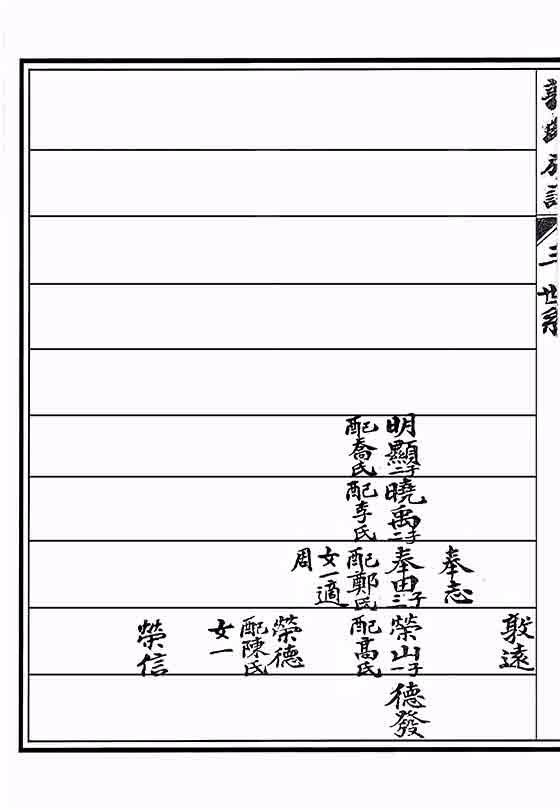 三 世系
明顯子
配喬氏
曉禹二子
配李氏
奉志
奉田三子
配鄭氏
女一適
周
敦遠
榮山一子
配高氏
榮德
配陳氏
女一
榮信
德發